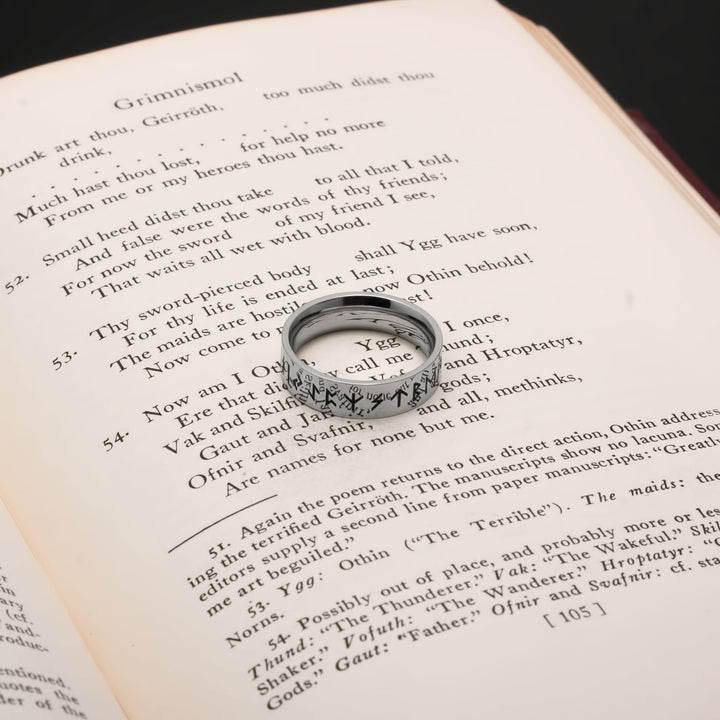 Grimnismol
Drunk art thou, Geirröth, too much didst thou
drink,
. . . . . . . . . . . . . . .
Much hast thou lost, for help no more
From me or my heroes thou hast.
52. Small heed didst thou take to all that I told,
And false were the words of thy friends;
For now the sword of my friend I see,
That waits all wet with blood.
53. Thy sword-pierced body shall Ygg have soon,
For thy life is ended at last;
The maids are hostile now Othin behold!
Now come to
54. Now am I Othin, Ygg I once,
Ere that call me
Vak and Skilfing and Hroptatyr,
Gaut and gods;
Ofnir and Svafnir, and all, methinks,
Are names for none but me.
51. Again the poem returns to the direct action, Othin address
ing the terrified Geirröth. The manuscripts show no lacuna. Som
editors supply a second line from paper manuscripts: "Greatly
me art beguiled."
53. Ygg: Othin ("The Terrible"). The maids: the
Norns.
54. Possibly out of place, and probably more or less
Thund: "The Thunderer." Vak: "The Wakeful." Skil
Shaker." Vofuth: "The Wanderer." Hroptatyr:
Gods." Gaut: "Father." Ofnir and Svafnir: cf. sta
[ 105 ]
in
ary
(cf.
and-
roduc-
entioned.
quotes the
der of the
ᛇᛈᛉᛋᛏ